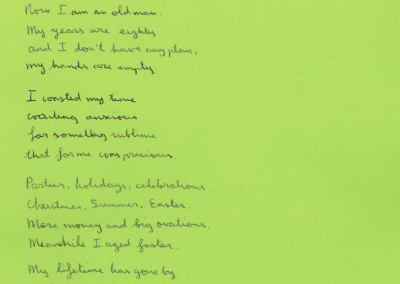 Now I am an old man.
My years are eighty
and I don't have any plan,
my hands are empty
I wasted my time
waiting anxious
for something sublime
that for me was precious.
Parties, holidays, celebrations.
Christmas, Summer, Easter.
More money and big ovations.
Meanwhile I aged faster.
My lifetime has gone by